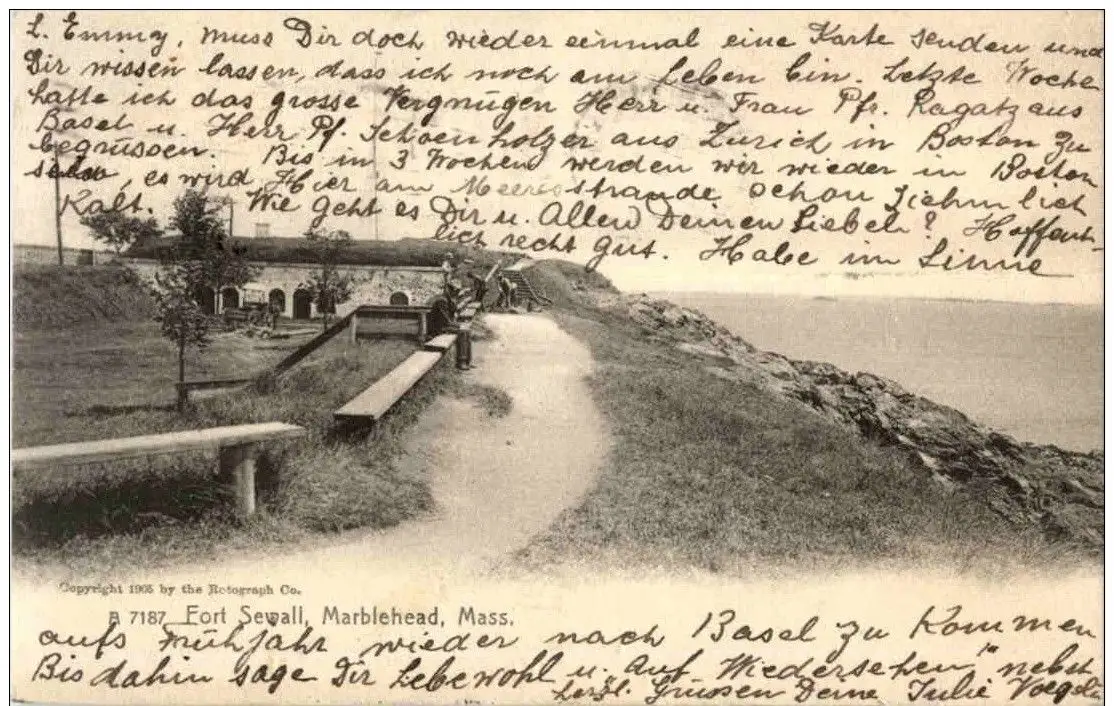 L. Emmy, muss Dir doch wieder einmal eine Karte senden und
Dir wissen lassen, dass ich noch am Leben bin. Letzte Woche
hatte ich das grosse Vergnügen Herr u. Frau Pfr. Ragatz aus
Basel u. Herr Pf. Schoenholzer aus Zürich in Boston zu
begrüssen. Bis in 3 Wochen werden wir wieder in Boston
sein, es wird Hier am Meeresstrande schon ziehmlich
Kalt. Wie geht es Dir u. Allen Deinen Lieben? Hoffent-
lich recht gut. Habe im Sinne
Copyright 1905 by the Rotograph Co.
B 7187 Fort Sewall, Marblehead, Mass.
aufs Frühjahr wieder nach Basel zu Kommen
Bis dahin sage Dir Lebewohl u. "Auf Wiedersehen," nebst
herzl. Grüssen Deine Julie